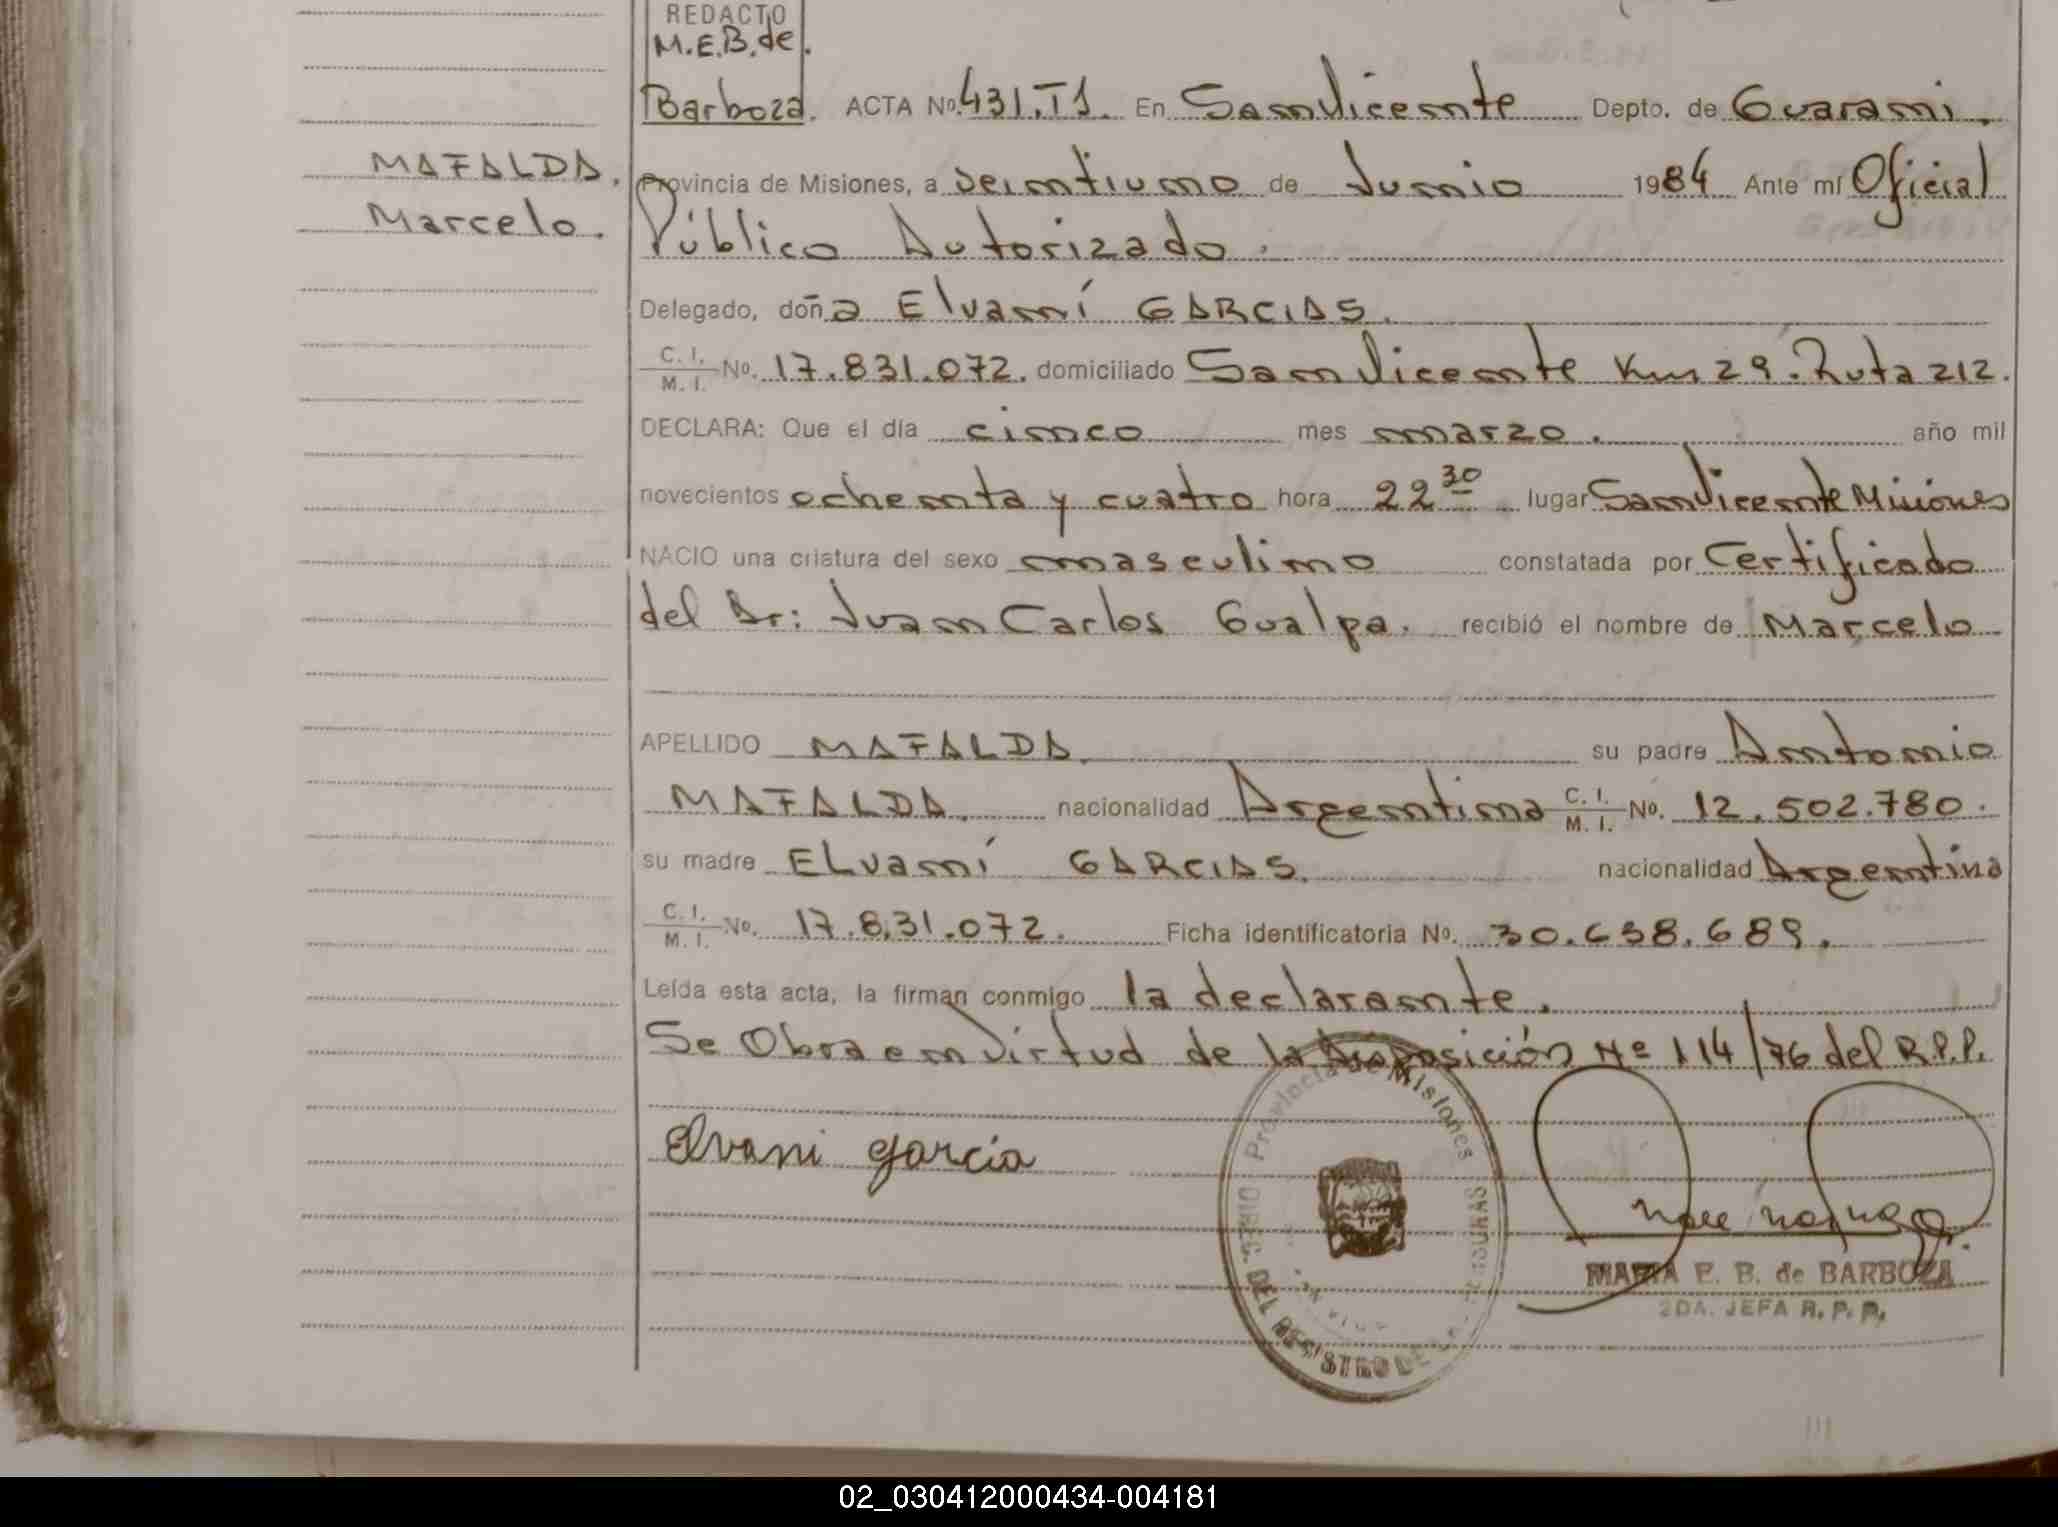 REDACTO
M.E.B. de.
Barboza. ACTA Nº. 431. T1. En San Vicente Depto. de Guarani.
MAFALDA.
Marcelo.
Provincia de Misiones, a veintiuno de Junio 1984 Ante mí Oficial
Público Autorizado.
Delegado, doña Elvaní GARCIAS.
C. I. / M. I. Nº. 17.831.072. domiciliado San Vicente Km 29. Ruta 212.
DECLARA: Que el día cinco mes marzo. año mil
novecientos ochenta y cuatro hora 22 30 lugar San Vicente Misiones
NACIO una criatura del sexo masculino constatada por Certificado
del Dr: Juan Carlos Gualpa. recibió el nombre de Marcelo
APELLIDO MAFALDA. su padre Antonio
MAFALDA. nacionalidad Argentina C. I. / M. I. Nº. 12.502.780.
su madre ELvaní GARCIAS. nacionalidad Argentina
C. I. / M. I. Nº. 17.831.072. Ficha identificatoria Nº. 30.638.689.
Leída esta acta, la firman conmigo la declarante.
Se Obra en virtud de la Disposición Nº 114/76 del R.P.P.
Elvani garcia
Provincia de Misiones
DEL REGISTRO DE
MARIA E. B. de BARBOZA
2DA. JEFA R. P. P.
02_030412000434-004181